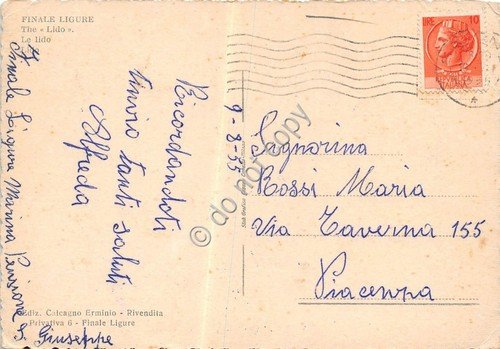 FINALE LIGURE
The « Lido ».
Le lido
LIRE 10
Ricordandoti
t'invio tanti saluti
Alfreda
9-8-55
Finale Ligure Marina Pensione S. Giuseppe
Signorina
Rossi Maria
Via Taverna 155
Piacenza
Ediz. Calcagno Erminio - Rivendita
Privativa 6 - Finale Ligure
do not copy